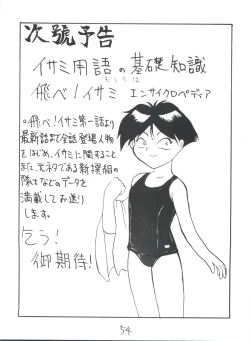 次號予告
イサミ用語の基礎知識
もしくは
飛べ!イサミ エンサイクロペディア
。飛べ!イサミ第一話より
最新話まで全話登場人物
をはじめ、イサミに関すること
また、元ネタである新撰組の
隊士などのデータを
満載してお送り
します。
乞う!
御期待!
54